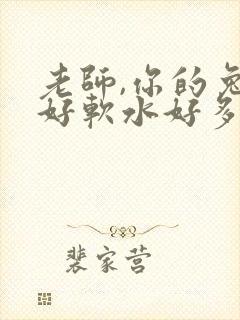 老師,你的兔
好軟水好多
裴家营